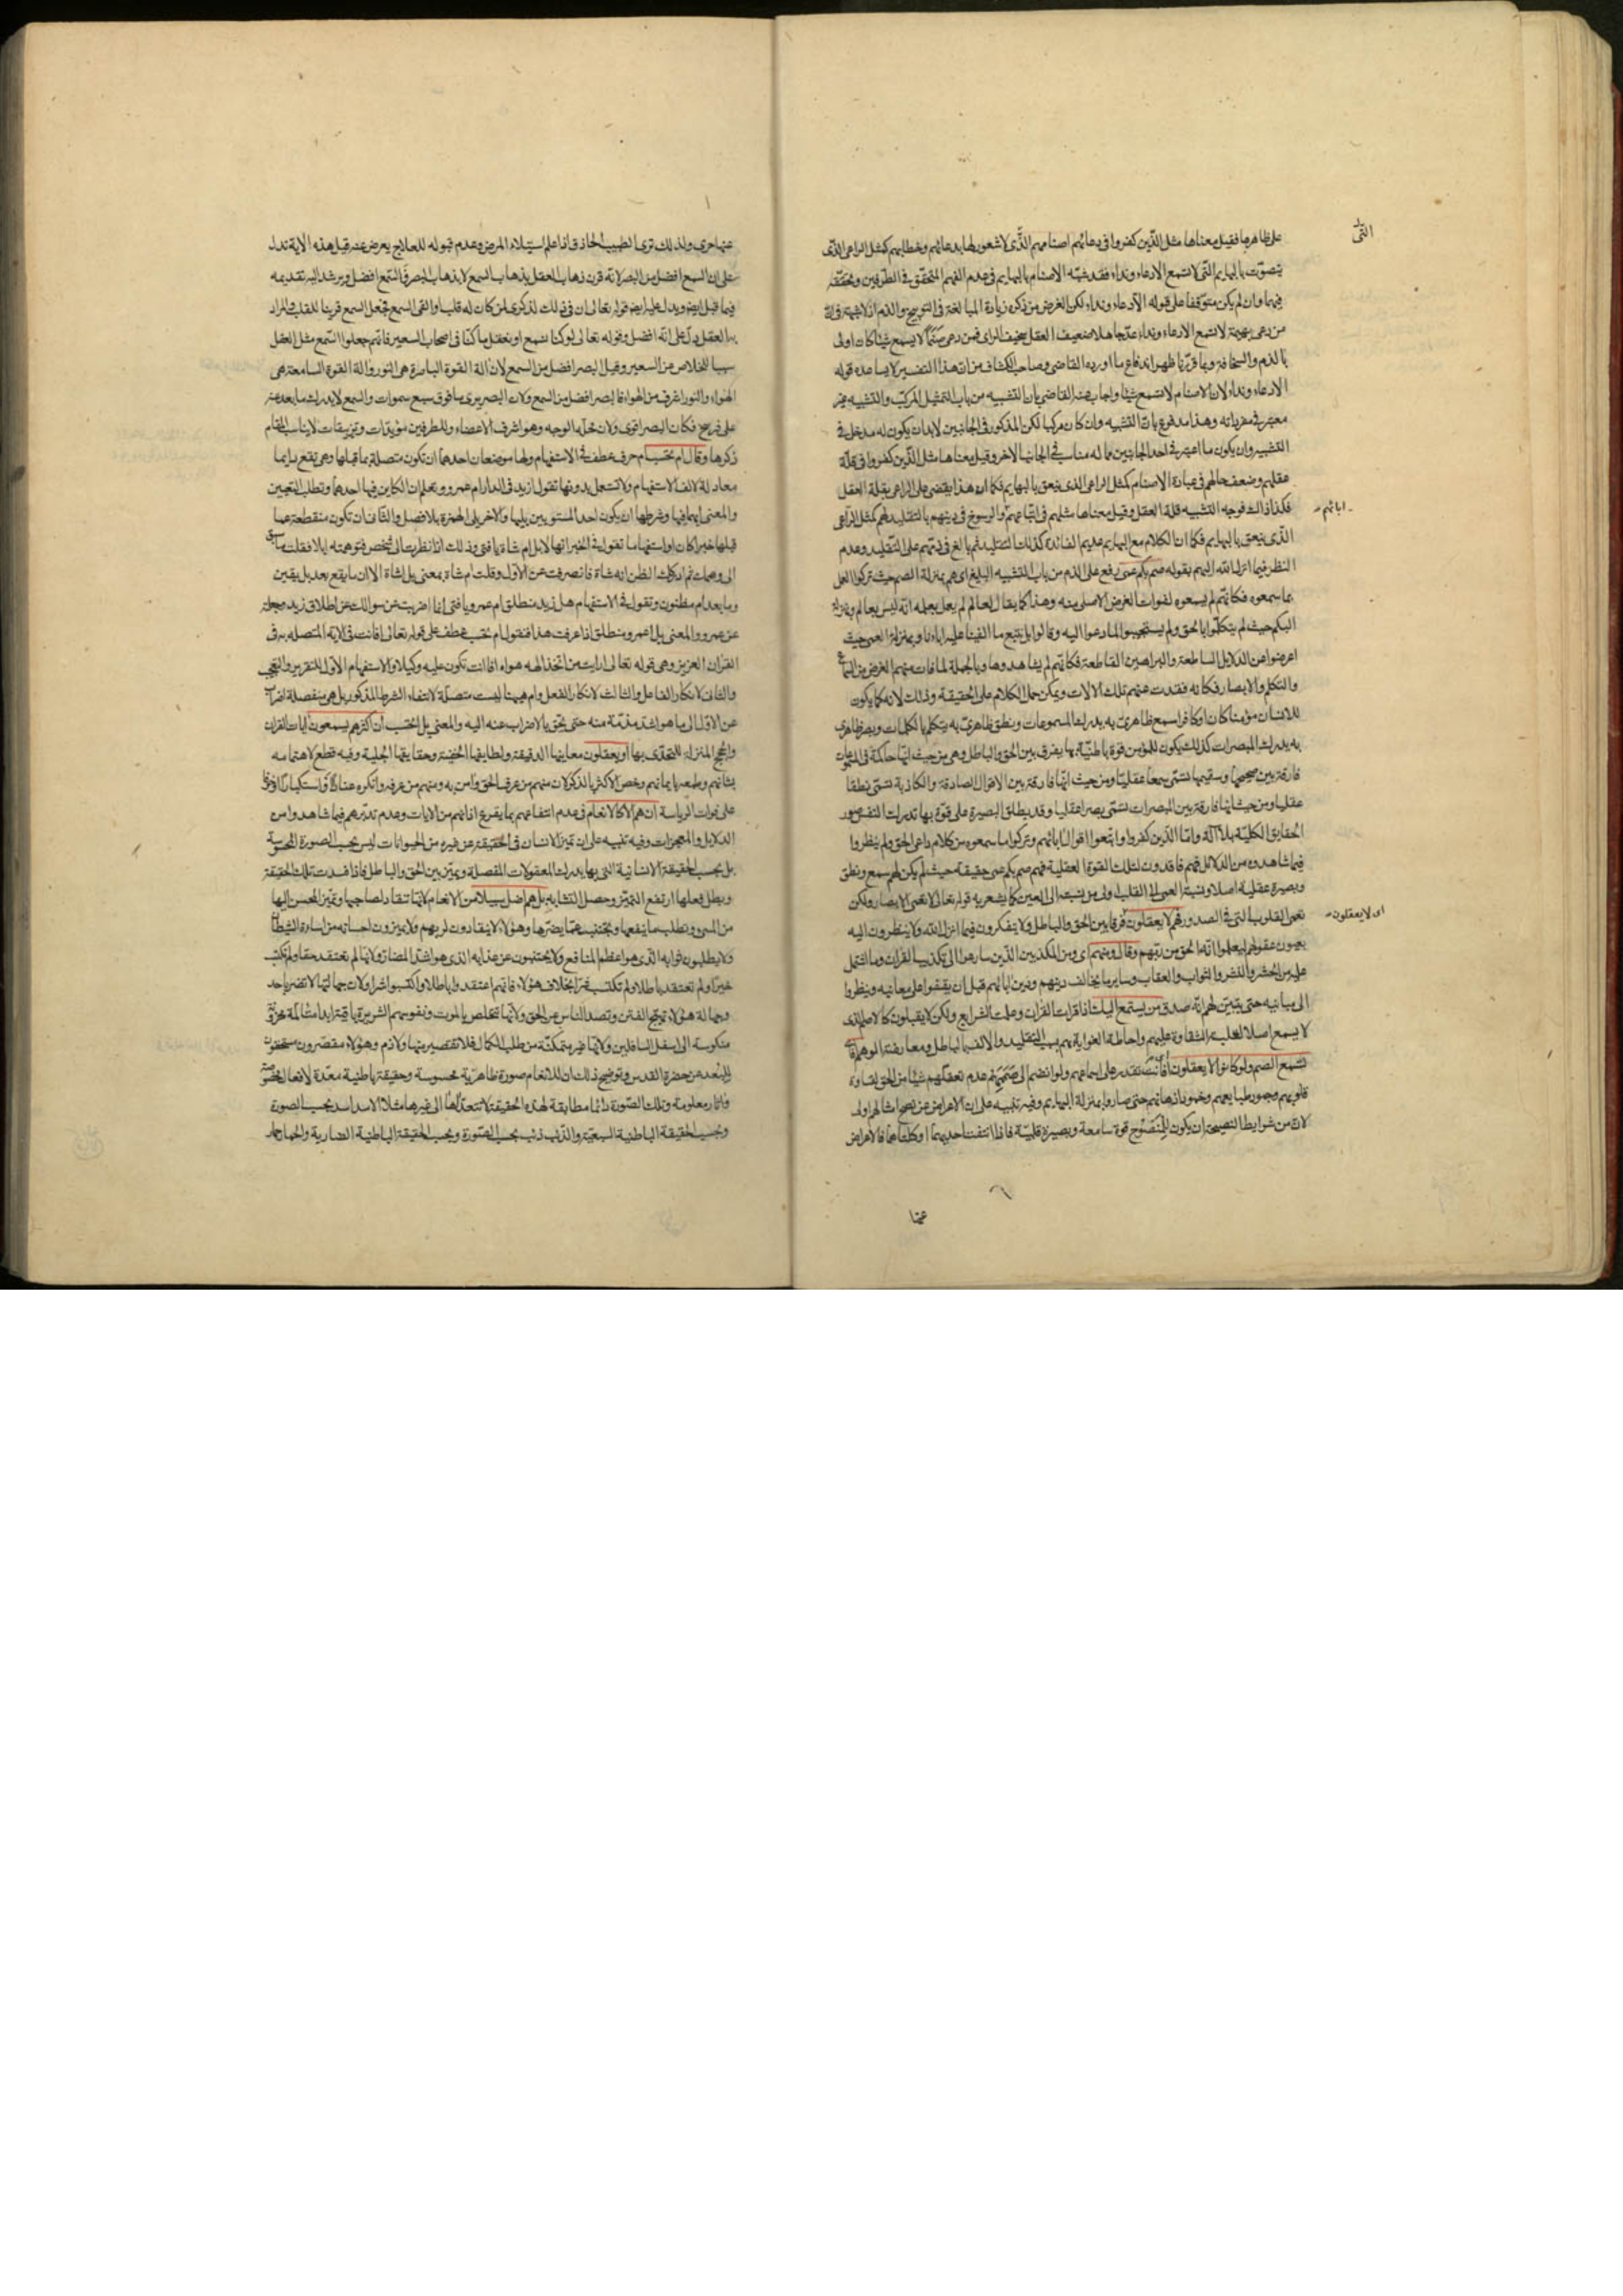 على ظاهرها فقيل معناها مثل الذين كفروا في دعائهم اصنامهم الذي لا شعور لها بدعائهم وخطابهم كمثل الراعي الذي
يتصوت بالبهايم التي لا تسمع الا دعاء ونداء فقد شبه الاصنام بالبهايم في عدم الفهم المتحقق في الطرفين وتحققه
فيهما وان لم يكن متوقفا على قوله الا دعاء ونداء لكن الغرض من ذكره زيادة المبالغة في التوبيخ والذم اذ لا شبهة في ان
من دعى بهيمة لا تسمع الا دعاء ونداء عد جاهلا ضعيف العقل سخيف الراى فمن دعى صنما لا يسمع شيئا كان اولى
بالذم والسخافة وبما قررنا ظهر اندفاع ما اورده القاضي وصاحب الكشاف من ان هذا التفسير لا يساعده قوله
الا دعاء ونداء لان الاصنام لا تسمع شيئا واجاب عنه القاضي بان التشبيه من باب التمثيل المركب والتشبيه غير
معتبر في مفرداته وهذا مدفوع بان التشبيه وان كان مركبا لكن المذكور في الجانبين لا بد ان يكون له مدخل في
التشبيه وان يكون ما اعتبر في احد الجانبين مما له مناسب في الجانب الاخر وقيل معناها مثل الذين كفروا في قلة
عقلهم وضعف حالهم في عبادة الاصنام كمثل الراعي الذي ينعق بالبهايم فكما ان هذا يقضى على الراعي بقلة العقل
فكذا ذاك فوجه التشبيه قلة العقل وقيل معناها مثلهم في اتباعهم والرسوخ في دينهم بالتقليد لهم كمثل الراعي
الذي ينعق بالبهايم فكما ان الكلام مع البهايم عديم الفائدة كذلك التقليد ثم بالغ في ذمهم على التقليد وعدم
النظر فيما انزل الله اليهم بقوله صم بكم عمى رفع على الذم من باب التشبيه البليغ اى هم بمنزلة الصم حيث تركوا العمل
بما سمعوه فكانهم لم يسمعوه لفوات الغرض الاصلى منه وهذا كما يقال لعالم لم يعمل بعلمه انه ليس بعالم وبمنزلة
البكم حيث لم يتكلموا بالحق ولم يستجيبوا لما دعوا اليه وقالوا بل نتبع ما الفينا عليه اباءنا وبمنزلة العمى حيث
اعرضوا عن الدلايل الساطعة والبراهين القاطعة فكانهم لم يشاهدوها وبالجملة لما فات منهم الغرض من السماع
والتكلم والابصار فكانه فقدت عنهم تلك الالات ويمكن حمل الكلام على الحقيقة وذلك لانه كما يكون
للانسان مؤمنا كان او كافرا سمع ظاهرى به يدرك المسموعات ونطق ظاهرى به يتكلم بالكلمات وبصر ظاهرى
به يدرك المبصرات كذلك يكون للمؤمن قوة باطنية بها يفرق بين الحق والباطل وهى من حيث انها حاكمة في المسموعات
فارقة بين صحيحها وسقيمها تسمى سمعا عقليا ومن حيث انها فارقة بين الاقوال الصادقة والكاذبة تسمى نطقا
عقليا ومن حيث انها فارقة بين المبصرات تسمى بصرا عقليا وقد يطلق البصيرة على قوة بها تدرك النفس صور
الحقايق الكلية بلا آلة واما الذين كفروا واتبعوا اقوال ابائهم وتركوا ما سمعوه من كلام داعى الحق ولم ينظروا
فيما شاهدوه من الدلائل فهم فاقدون لتلك القوة العقلية فهم صم بكم عمى حقيقة حيث لم يكن لهم سمع ونطق
وبصيرة عقلية اصلا ونسبة العمى الى القلب اولى من نسبته الى العين كما يشعر به قوله تعالى لا تعمى الابصار ولكن
تعمى القلوب التي في الصدور فهم لا يعقلون فرقا بين الحق والباطل ولا يتفكرون فيما انزل الله ولا ينظرون اليه
بعيون عقولهم ليعلموا انه الحق من ربهم وقال ومنهم اى ومن المكذبين الذين سارعوا الى تكذيب القران وما اشتمل
عليه من الحشر والنشر والثواب والعقاب وساير ما يخالف دينهم ودين ابائهم قبل ان يقفوا على معانيه وينظروا
الى مبانيه حتى يتبين لهم انه صدق من يستمع اليك اذا قرات القران وعلمت الشرايع ولكن لا يقبلون كالاصم الذى
لا يسمع اصلا لغلبة الشقاوة عليهم واحاطة الغواية بهم بسبب التقليد والالف بالباطل ومعارضة الوهم افانت
تسمع الصم ولو كانوا لا يعقلون اى انت تقدر على اسماعهم ولو انضم الى صممهم عدم تعقلهم شيئا من الحق لقساوة
قلوبهم وجمود طبايعهم وخمود اذهانهم حتى صاروا بمنزلة البهايم وفيه تنبيه على ان الاعراض عن نصح امثالهم اولى
لان من شرايط النصيحة ان يكون للمنصوح قوة سامعة وبصيرة قلبية فاذا انتفت احديهما او كلتاهما فالاعراض
التى
ابائهم
اى لا يعقلون
عنها
عنها حرى ولذلك ترى الطبيب الحاذق اذا علم استيلاء المرض وعدم قبوله للعلاج يعرض عنه قيل هذه الاية تدل
على ان السمع افضل من البصر لانه قرن ذهاب العقل بذهاب السمع لا بذهاب البصر فالسمع افضل ويرشد اليه تقديمه
فيما قبل ايضا ويدل عليه ايضا قوله تعالى ان في ذلك لذكرى لمن كان له قلب او القى السمع فجعل السمع قرينا للقلب والمراد
به العقل يدل على انه افضل وقوله تعالى لو كنا نسمع او نعقل ما كنا في اصحاب السعير فانهم جعلوا السمع مثل العقل
سببا للخلاص من السعير وقيل البصر افضل من السمع لان الة القوة الباصرة هى النور والة القوة السامعة هى
الهواء والنور اشرف من الهواء فالبصر افضل من السمع ولان البصر يرى ما فوق سبع سموات والسمع لا يدرك ما بعد عنه
على فرسخ فكان البصر اقوى ولان محله الوجه وهو اشرف الاعضاء وللطرفين مؤيدات وتزييفات لا يناسب المقام
ذكرها وقال ام تحسب ام حرف عطف في الاستفهام ولها موضعان احدهما ان تكون متصلة بما قبلها وهى تقع دايما
معادلة لالف الاستفهام ولا تستعمل بدونها تقول ازيد في الدار ام عمرو وتعلم ان الكاين فيها احدهما وتطلب التعيين
والمعنى ايهما فيها وشرطها ان يكون احد المستويين يليها والاخر يلى الهمزة بلا فصل والثاني ان تكون منقطعة عما
قبلها خبرا كان او استفهاما تقول في الخبر انها لابل ام شاة يا فتى وذلك اذا نظرت الى شخص فتوهمته ابلا فقلت ما سبق
الى وهمك ثم ادركك الظن انه شاة فانصرفت عن الاول وقلت ام شاة بمعنى بل شاة الا ان ما يقع بعد بل يقين
وما بعد ام مظنون وتقول في الاستفهام هل زيد منطلق ام عمرو يا فتى انما اضربت عن سوالك عن انطلاق زيد وجعلته
عن عمرو والمعنى بل اعمرو منطلق اذا عرفت هذا فنقول ام تحسب عطف على قوله تعالى افانت في الاية المتصلة به في
القران العزيز وهى قوله تعالى ارايت من اتخذ الهه هواه افانت تكون عليه وكيلا والاستفهام الاول للتقرير والتعجب
والثاني لانكار الفاعل والثالث لانكار الفعل وام هيهنا ليست متصلة لانتفاء الشرط المذكور بل هى منفصلة اضراب
عن الاول الى ما هو اشد مذمة منه حتى يحق بالاضراب عنه اليه والمعنى بل اتحسب ان اكثرهم يسمعون ايات القران
والحجج المنزلة للتحدى بها او يعقلون معانيها الدقيقة ولطايفها الخفية وحقايقها الجلية وفيه قطع لاهتمامه
بشانهم وطمعه بايمانهم وخص الاكثر بالذكر لان منهم من عرف الحق وامن به ومنهم من عرفه وانكره عنادا واستكبارا او خوفا
على فوات الرياسة ان هم الا كالانعام في عدم انتفاعهم بما يقرع اذانهم من الايات وعدم تدبرهم فيما شاهدوا من
الدلايل والمعجزات وفيه تنبيه على ان تميز الانسان في الحقيقة عن غيره من الحيوانات ليس بحسب الصورة المحسوسة
بل بحسب الحقيقة الانسانية التى بها يدرك المعقولات المفصلة ويميز بين الحق والباطل فاذا فسدت تلك الحقيقة
وبطل فعلها ارتفع التميز وحصل التشابه بل هم اضل سبيلا من الانعام لانها تنقاد لصاحبها وتميز المحسن اليها
من المسئ وتطلب ما ينفعها وتجتنب عما يضرها وهؤلاء لا ينقادون لربهم ولا يميزون احسانه من اساءة الشيطان
ولا يطلبون ثوابه الذى هو اعظم المنافع ولا يجتنبون عن عذابه الذى هو اشد المضار ولانها لم تعتقد حقا ولم تكتسب
خيرا ولم تعتقد باطلا ولم تكتسب شرا بخلاف هؤلاء فانهم اعتقدوا باطلا واكتسبوا شرا ولان جهالتها لا تضر باحد
وجهالة هؤلاء تهيج الفتن وتصد الناس عن الحق ولانها تتخلص بالموت ونفوسهم الشريرة باقية ابدا متالمة محزونة
منكوسة الى اسفل السافلين ولانها غير متمكنة من طلب الكمال فلا تقصير منها ولا ذم وهؤلاء مقصرون مستحقون
للبعد عن حضرة القدس وتوضيح ذلك ان للانعام صورة ظاهرية محسوسة وحقيقة باطنية معدة لافعال مخصوصة
واثار معلومة وتلك الصورة دائما مطابقة لهذه الحقيقة لا تتعداها الى غيرها مثلا الاسد اسد بحسب الصورة
وبحسب الحقيقة الباطنية السبعية والذئب ذئب بحسب الصورة وبحسب الحقيقة الباطنية الضارية والحمار حمار